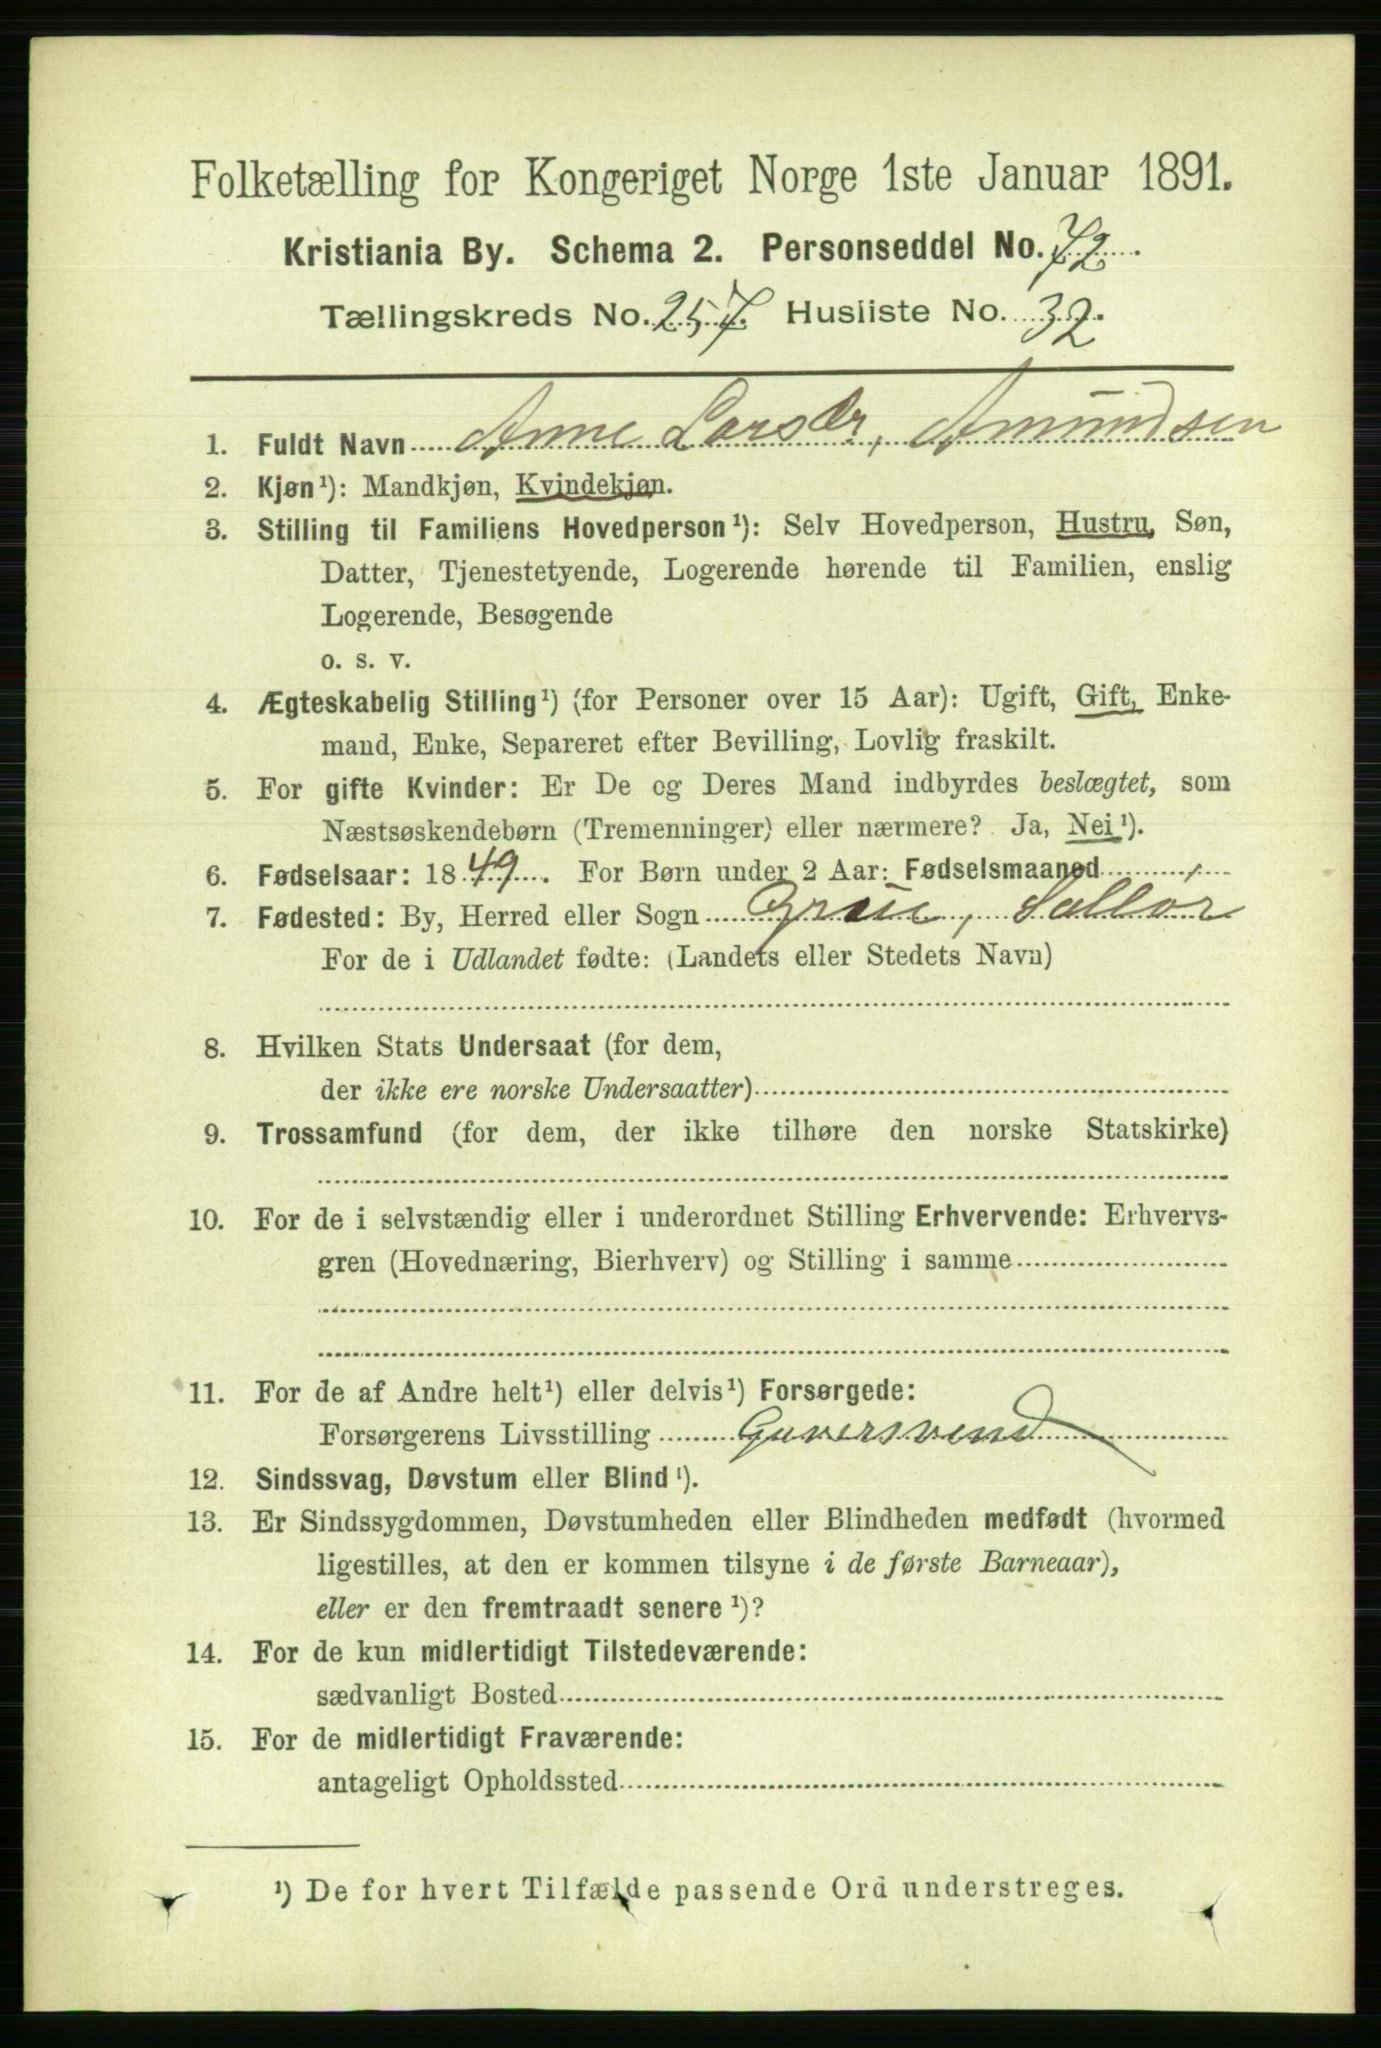 Folketælling for Kongeriget Norge 1ste Januar 1891.
Kristiania By. Schema 2. Personseddel No. 72.
Tællingskreds No. 257. Husliste No. 32.
1. Fuldt Navn Anne Larsdr, Amundsen
2. Kjøn¹): Mandkjøn, Kvindekjøn.
3. Stilling til Familiens Hovedperson¹): Selv Hovedperson, Hustru, Søn,
Datter, Tjenestetyende, Logerende hørende til Familien, enslig
Logerende, Besøgende
o. s. v.
4. Ægteskabelig Stilling¹) (for Personer over 15 Aar): Ugift, Gift, Enke-
mand, Enke, Separeret efter Bevilling, Lovlig fraskilt.
5. For gifte Kvinder: Er De og Deres Mand indbyrdes beslægtet, som
Næstsøskendebørn (Tremenninger) eller nærmere? Ja, Nei¹).
6. Fødselsaar: 1849. For Børn under 2 Aar: Fødselsmaaned
7. Fødested: By, Herred eller Sogn Grue, Solør
For de i Udlandet fødte: (Landets eller Stedets Navn)
8. Hvilken Stats Undersaat (for dem,
der ikke ere norske Undersaatter)
9. Trossamfund (for dem, der ikke tilhøre den norske Statskirke)
10. For de i selvstændig eller i underordnet Stilling Erhvervende: Erhvervs-
gren (Hovednæring, Bierhverv) og Stilling i samme
11. For de af Andre helt¹) eller delvis¹) Forsørgede:
Forsørgerens Livsstilling Gaversvend
12. Sindssvag, Døvstum eller Blind¹).
13. Er Sindssygdommen, Døvstumheden eller Blindheden medfødt (hvormed
ligestilles, at den er kommen tilsyne i de første Barneaar),
eller er den fremtraadt senere¹)?
14. For de kun midlertidigt Tilstedeværende:
sædvanligt Bosted
15. For de midlertidigt Fraværende:
antageligt Opholdssted
¹) De for hvert Tilfælde passende Ord understreges.